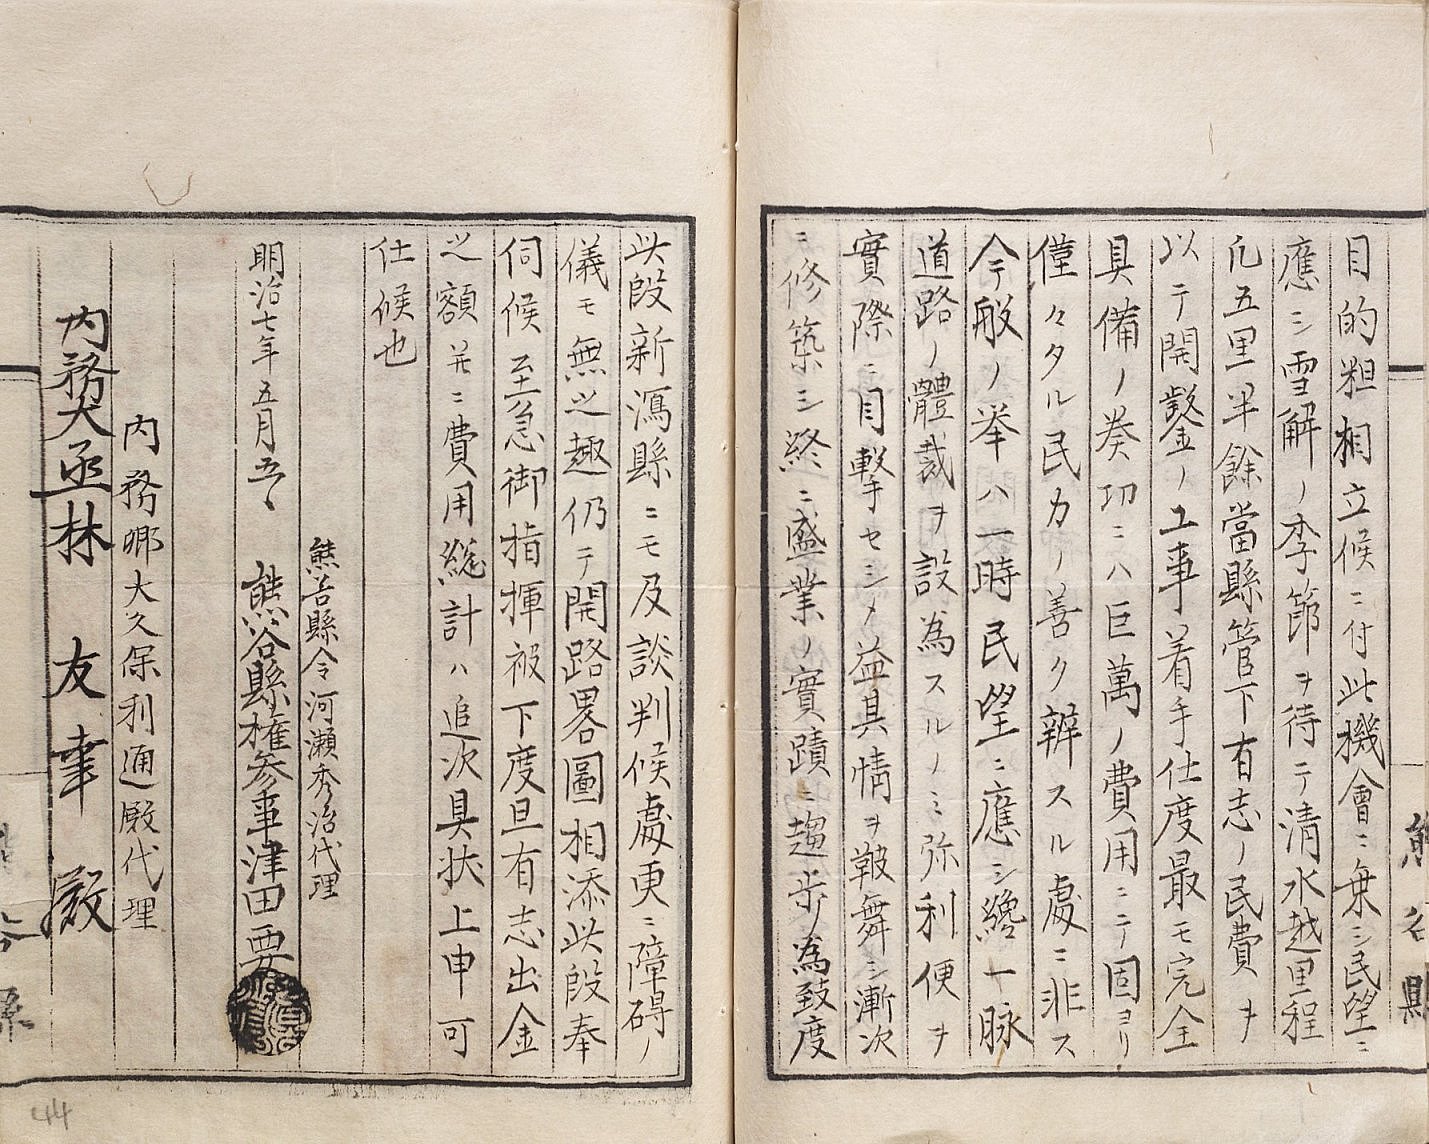 目的粗相立候ニ付此機會ニ乗シ民望ニ
應シ雪解ノ季節ヲ待テ清水越里程
凢五里半餘當縣管下有志ノ民費ヲ
以テ開鑿ノ工事着手仕度最モ完全
具備ノ奏功ニハ巨萬ノ費用ニテ固ヨリ
僅々タル民力ノ善ク辨スル處ニ非ス
今般ノ挙ハ一時民望ニ應シ纔一脉
道路ノ體裁ヲ設為スルノミ弥利便ヲ
實際ニ目撃セシメ益其情ヲ鞁舞シ漸次
ニ修築シ終ニ盛業ノ實蹟ニ趨歩ノ為致度
此段新潟縣ニモ及談判候處更ニ障碍ノ
儀モ無之趣仍テ開路畧圖相添此段奉
伺候至急御指揮被下度且有志出金
之額并ニ費用総計ハ追次具状上申可
仕候也
熊谷縣令河瀬秀治代理
明治七年五月 熊谷縣権参事津田要
内務卿大久保利通殿代理
内務大丞林友幸殿
44